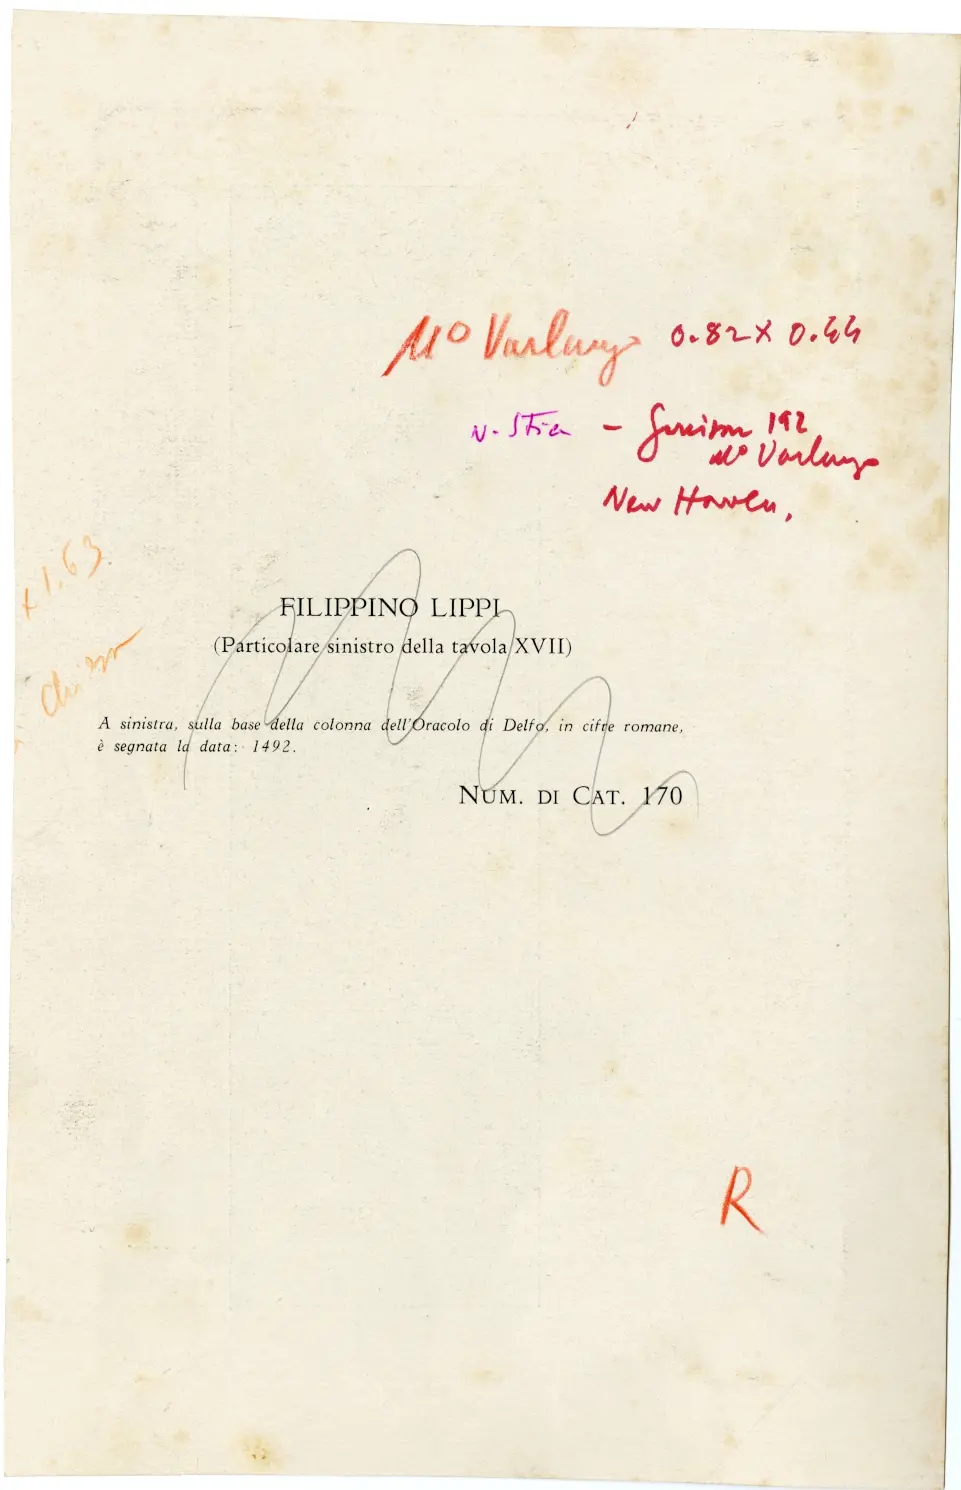 Mº Varlungo 0.82 x 0.44
N. Stia – 192
Mº Varlungo
New Haven,
x 1.63
FILIPPINO LIPPI
(Particolare sinistro della tavola XVII)
A sinistra, sulla base della colonna dell'Oracolo di Delfo, in cifre romane,
è segnata la data: 1492.
NUM. DI CAT. 170
R